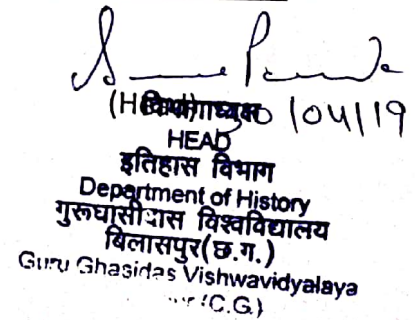 (Head) विभागाध्यक्ष 30/04/19
HEAD
इतिहास विभाग
Department of History
गुरूघासीदास विश्वविद्यालय
बिलासपुर(छ.ग.)
Guru Ghasidas Vishwavidyalaya
(C.G.)